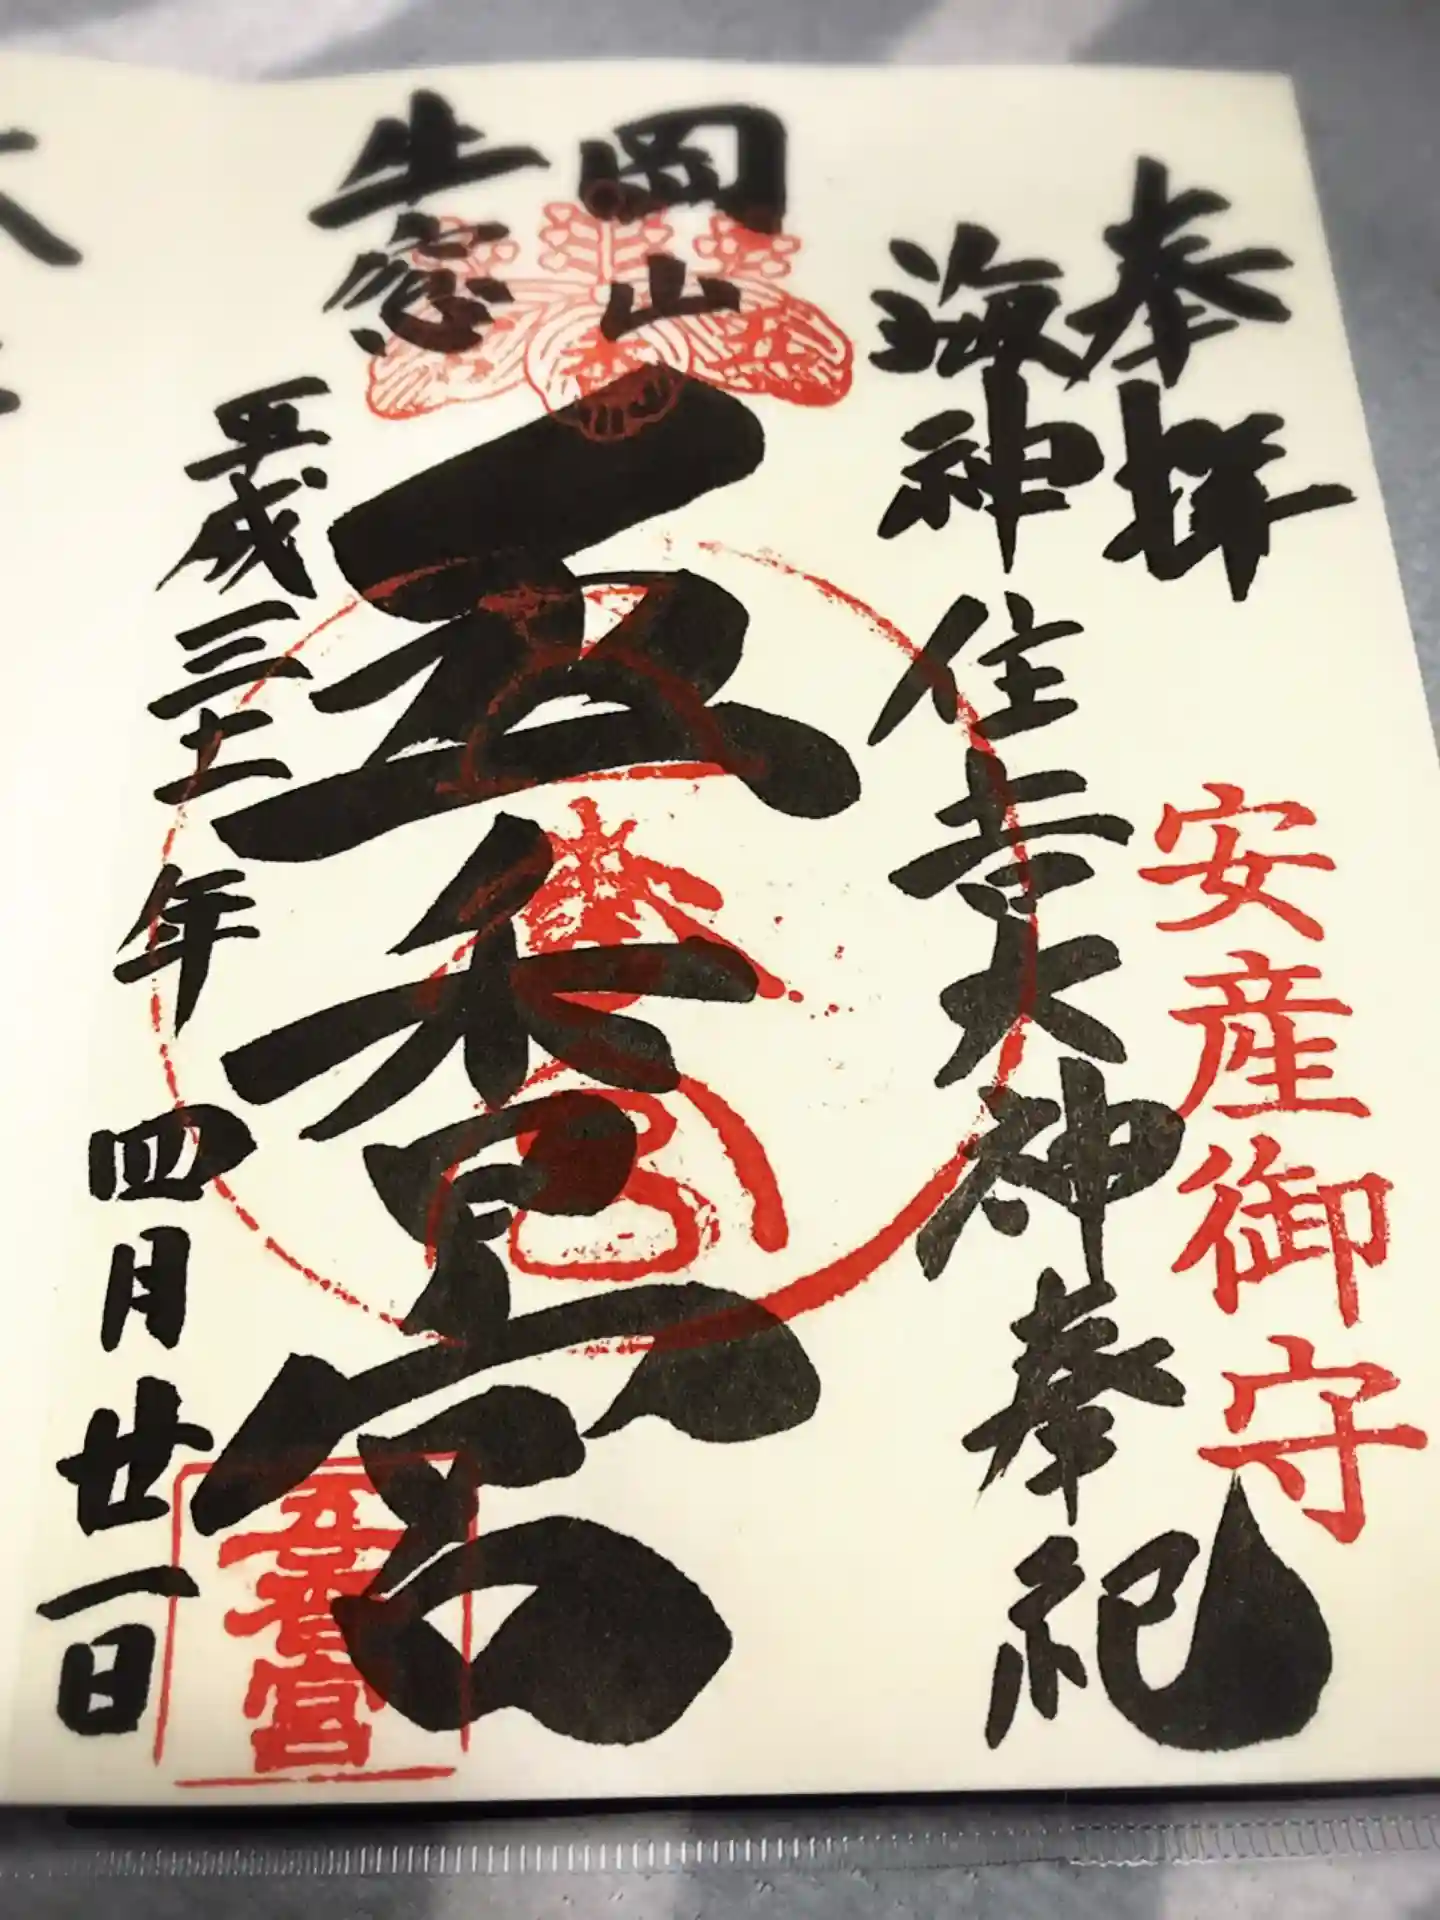 奉拝
安産御守
海神 住吉大神 奉祀
岡山
牛窓
五香宮
五香宮
平成三十一年 四月廿一日